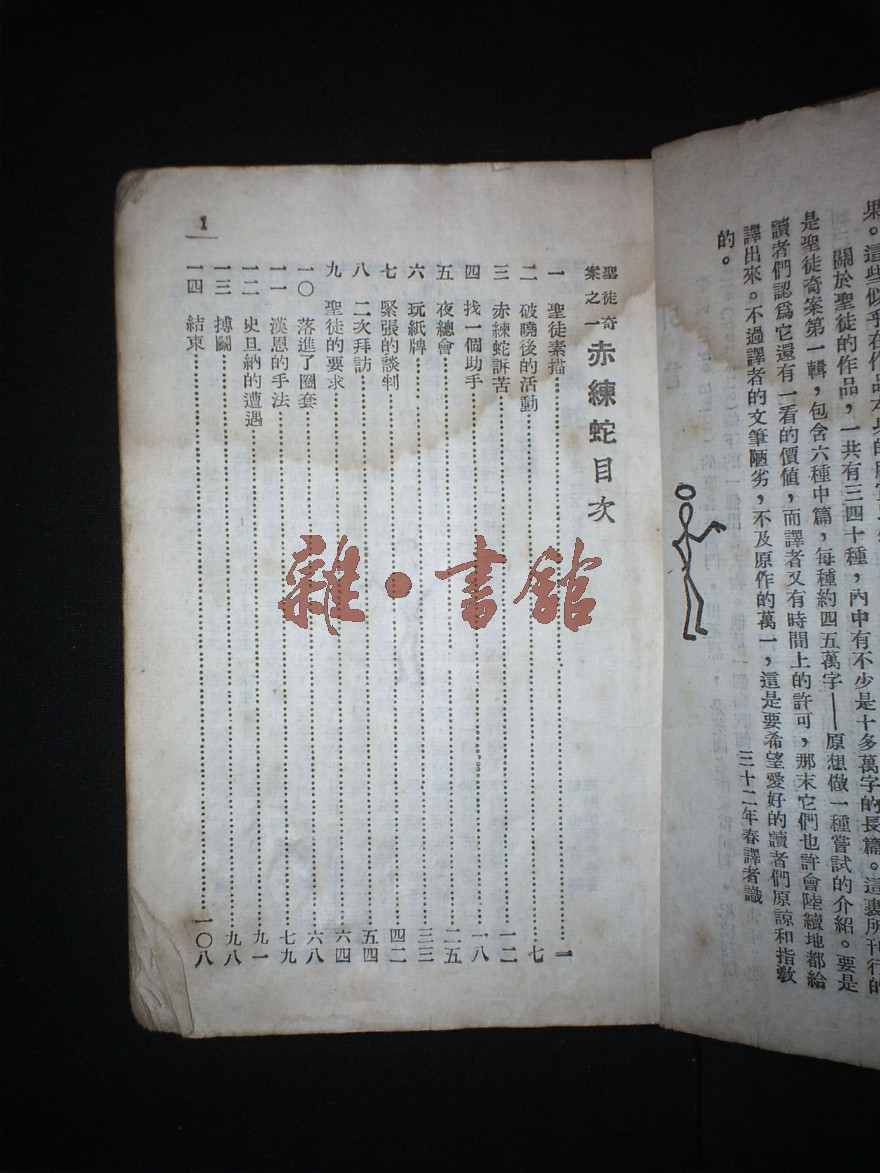 果。這些似乎在作品本身的
關於聖徒的作品，一共有三四十種，內中有不少是十多萬字的長篇。這裏所刊行的
是聖徒奇案第一輯，包含六種中篇，每種約四五萬字——原想做一種嘗試的介紹。要是
讀者們認爲它還有一看的價値，而譯者又有時間上的許可，那末它們也許會陸續地都給
譯出來。不過譯者的文筆陋劣，不及原作的萬一，這是要希望愛好的讀者們原諒和指敎
的。
三十二年春譯者識
聖徒奇案之一 赤練蛇目次
一 聖徒素描……一
二 破曉後的活動……七
三 赤練蛇訴苦……一二
四 找一個助手……一八
五 夜總會……二五
六 玩紙牌……三三
七 緊張的談判……四二
八 二次拜訪……五四
九 聖徒的要求……六四
一〇 落進了圈套……六八
一一 漢恩的手法……七九
一二 史旦納的遭遇……九一
一三 搏鬭……九八
一四 結束……一〇八
1
雜·書館